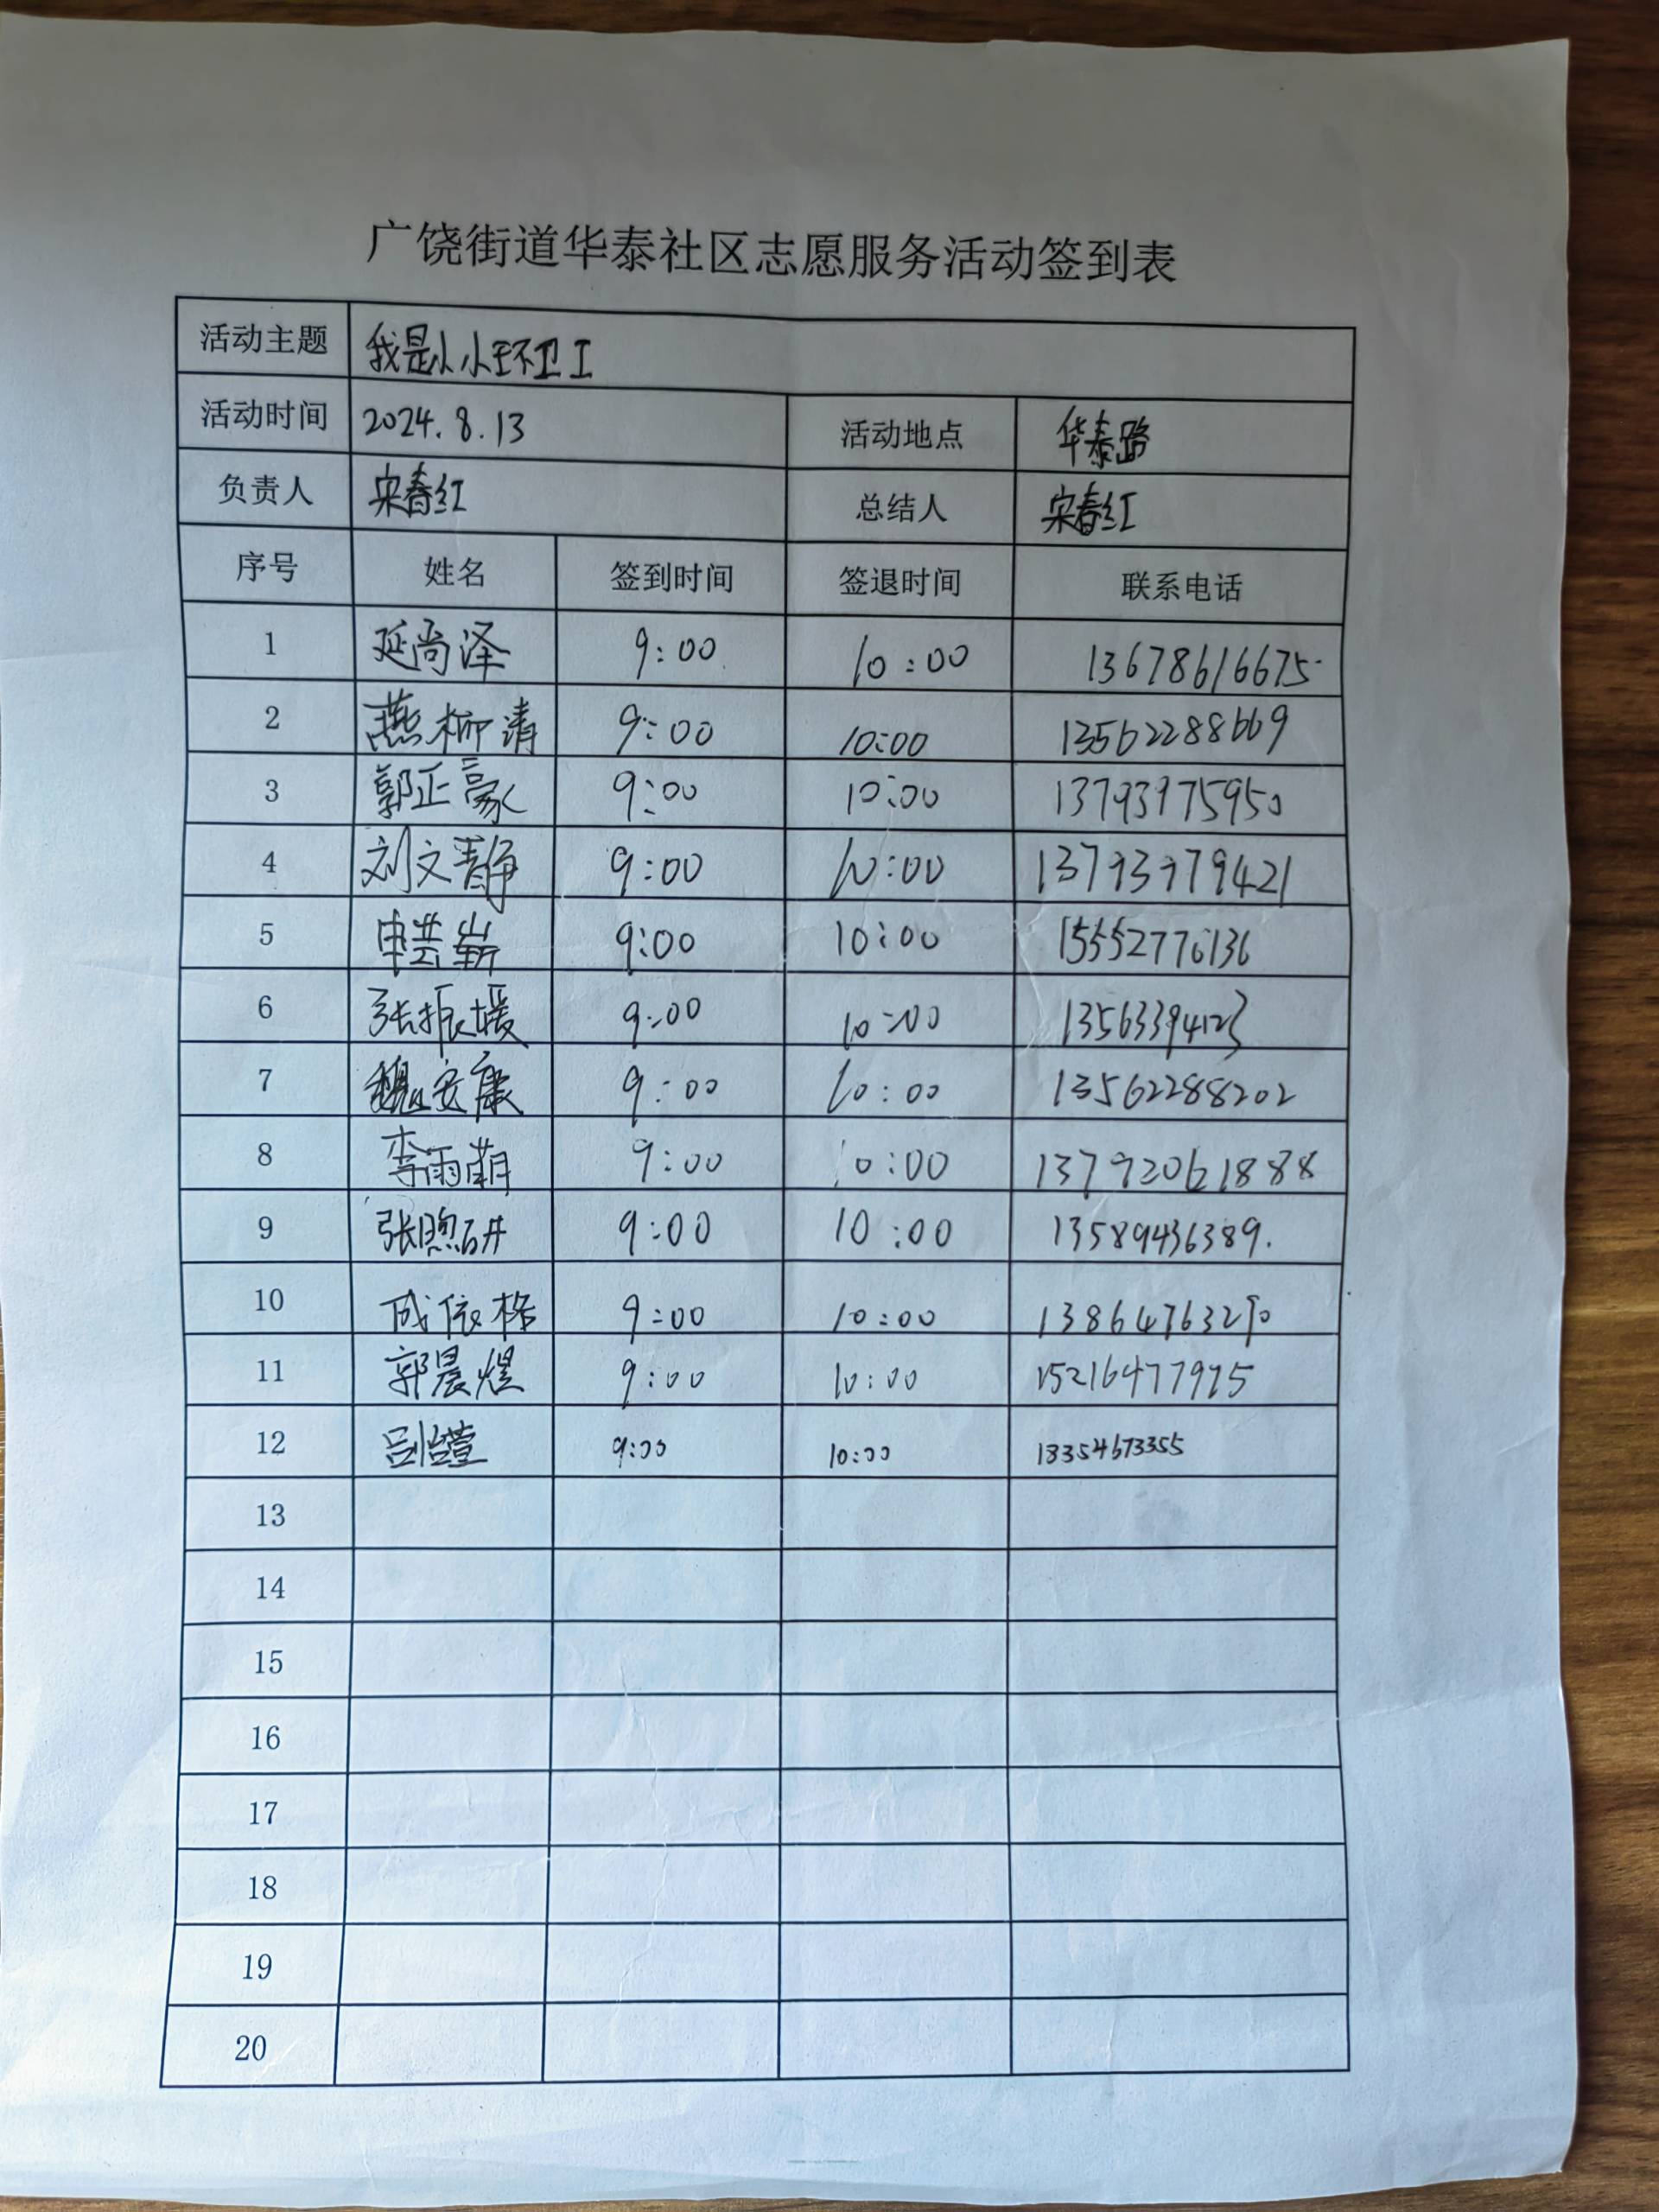 广饶街道华泰社区志愿服务活动签到表
活动主题 我是小小环卫工
活动时间 2024.8.13 活动地点 华泰路
负责人 宋春红 总结人 宋春红
序号 姓名 签到时间 签退时间 联系电话
1 延尚泽 9:00 10:00 13678616675
2 燕柳清 9:00 10:00 13562288669
3 郭正豪 9:00 10:00 13793975950
4 刘文静 9:00 10:00 13793979421
5 申芸崭 9:00 10:00 15552776136
6 张振媛 9:00 10:00 13563394123
7 魏安康 9:00 10:00 13562288202
8 李雨萌 9:00 10:00 13792061888
9 张煦研 9:00 10:00 13589436389.
10 成依格 9:00 10:00 13864763290
11 郭晨煜 9:00 10:00 15216477975
12 9:00 10:00 18354673355
13
14
15
16
17
18
19
20